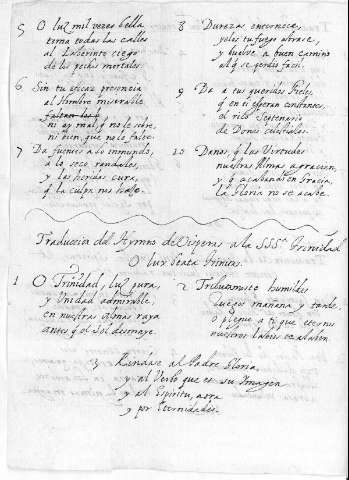 5 O luz mil vezes bella
todas las calles
al Laberinto ciego
de los pechos mortales.
6 Sin tu eficaz
al Hombre miserable
faltan los q
ni ay mal, q no le sobre
ni bien, que no le falte.
7 Da fuentes a lo inmundo,
a lo seco raudales,
y las heridas cura,
q la culpa nos haze.
8 Dureza
tu fuego abrase,
y buelve a buen camino
al q se perdio facil.
9 Da a tus queridos Fieles,
q en ti esperan constantes,
el rico Septenario
de Dones celestiales.
10 Danos, q las Virtudes
nuestras Almas
y q acabando en Gracia,
la Gloria no se acabe.
Traduccion del Hymno de Visperas a la SSSª Trinidad
O lux beata Trinitas.
1 O Trinidad, luz pura,
y Unidad admirable,
en nuestras almas raya
antes q el Sol desmaye.
2 humildes
luego mañana y tarde,
o plegue a ti que eternos
nuestros labios te alaben.
3 Rindase al Padre Gloria,
y al Verbo que es su Imagen
y al Espiritu,
y por Eternidades.